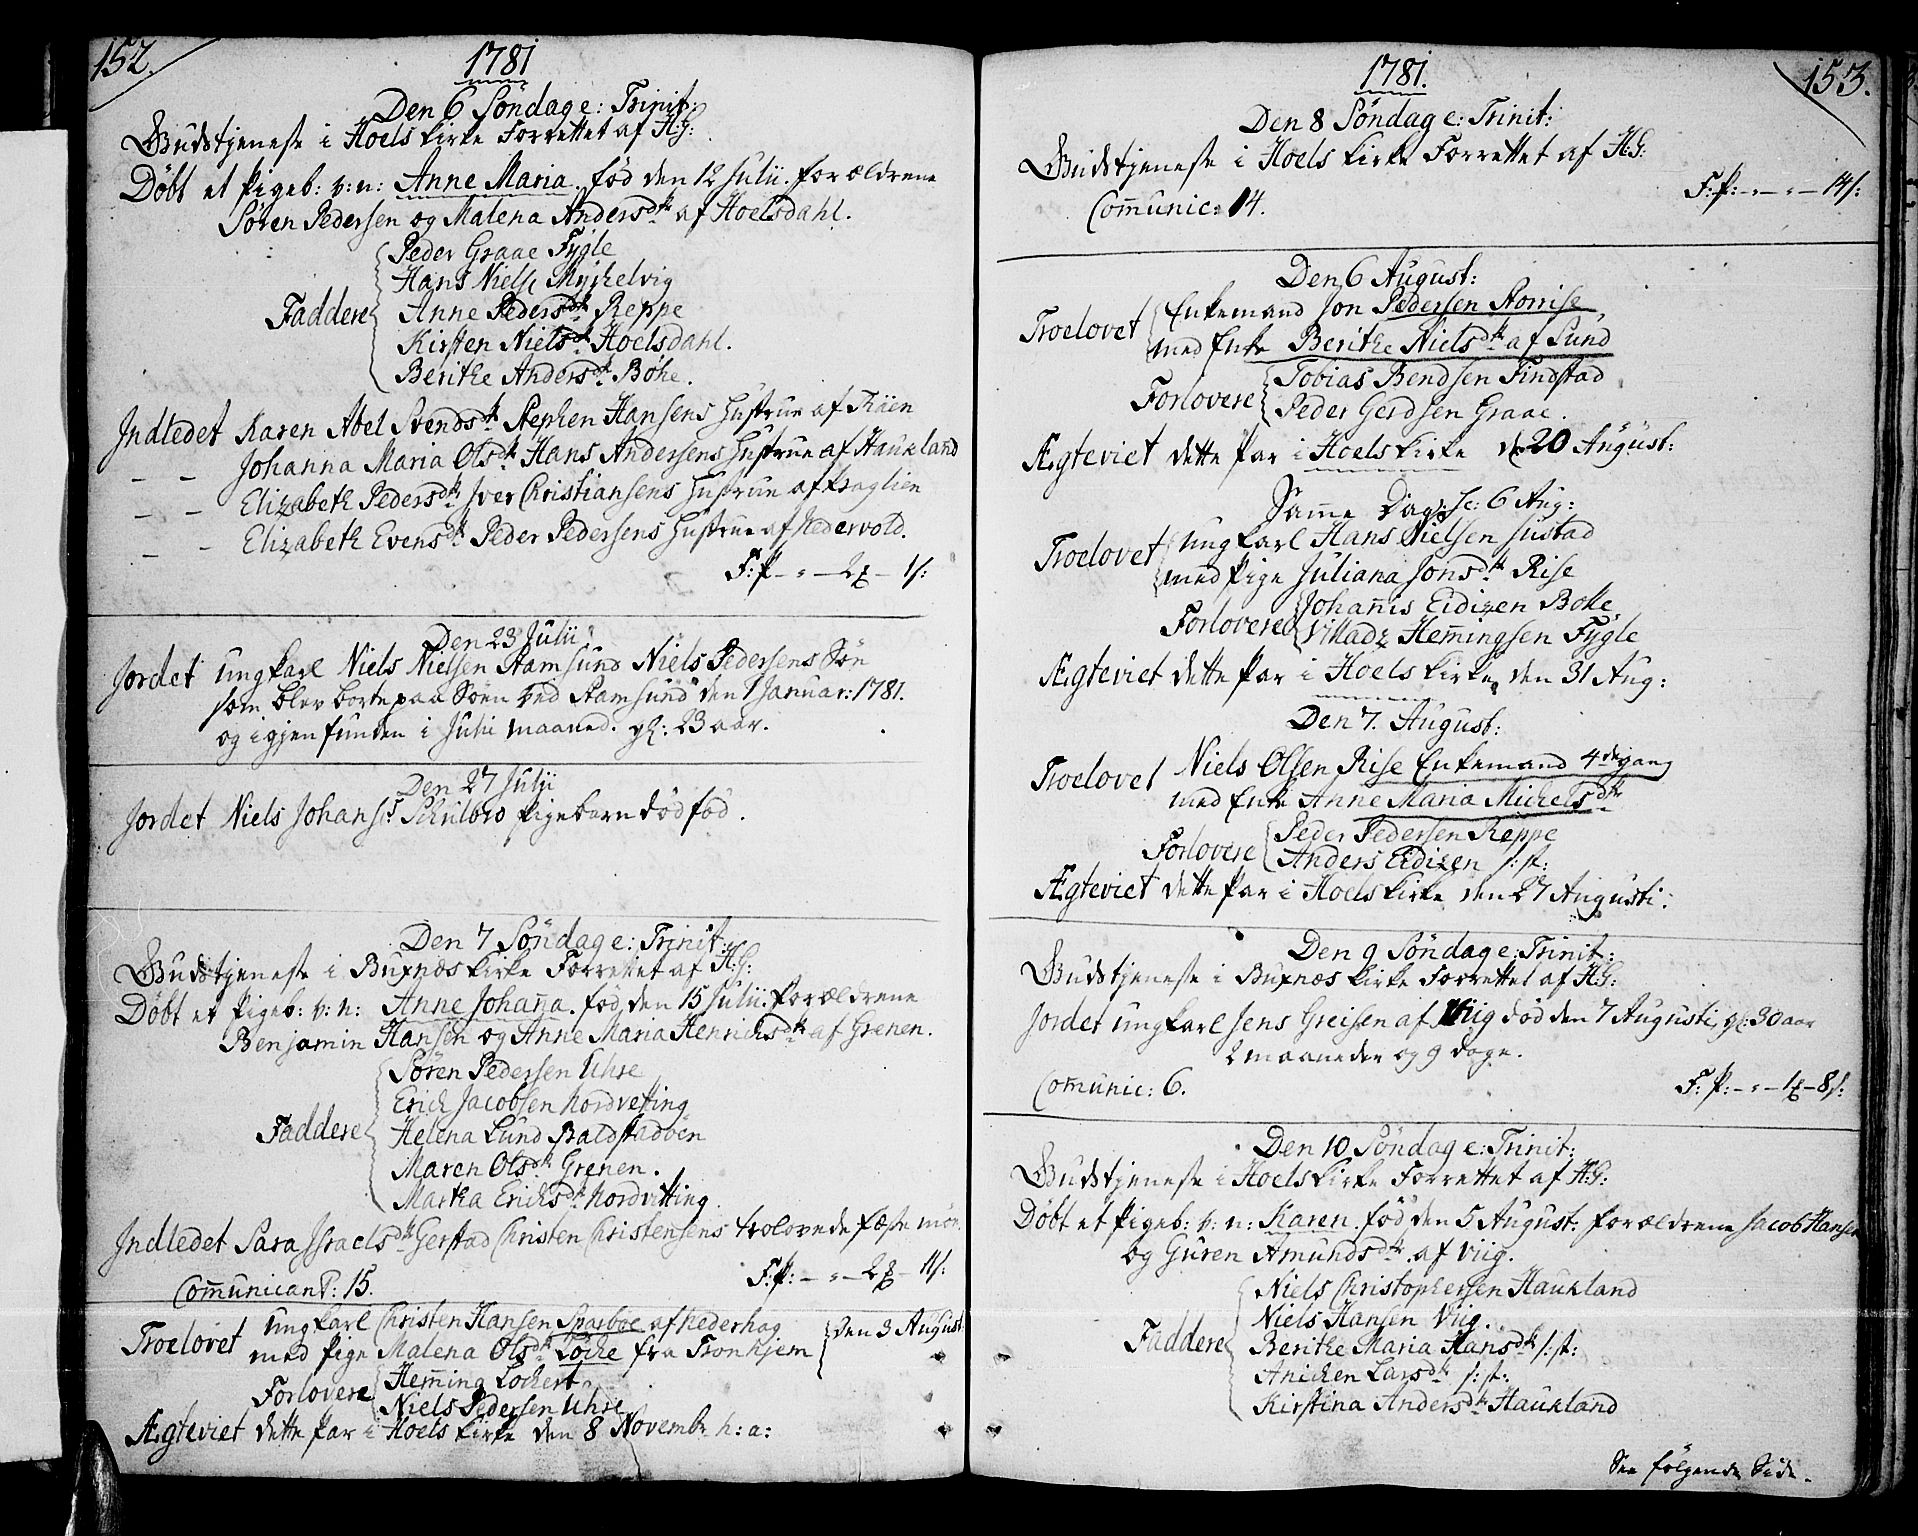 152.
1781
Den 6 Söndag e: Trinit:
Gudstjeneste i Hoels kirke Forrettet af H:G:
Döbt et Pigeb: v: n: Anne Maria. föd den 12 Julii. Forældrene
Sören Pedersen og Malena Andersdtr af Hoelsdahl.
Peder Graae Fygle
Hans Niels: Myckelvig
Faddere Anne Pedersdtr Reppe
Kirsten Nielsdtr Hoelsdahl.
Berithe Andersdtr Böhe.
Indledet Karen Abel Svendsdtr Stephen Hansens Hustrue af
— — Johanna Maria Olsdtr Hans Andersens Hustrue af Haukland
— — Elizabeth Pedersdtr Iver Christiansens Hustrue af Kraglien
— — Elizabeth Evensdtr Peder Pedersens Hustrue af Nedervold.
F:P — " — 2 — 1 s:
Den 23 Julii
Jordet ungkarl Niels Nielsen Stamsund Niels Pedersens Sön
som blev borte paa Söen ved Stamsund den 1 Januar: 1781.
og igjen funden i Julii maaned. gl: 23 aar.
Den 27 Julii
Jordet Niels Johans: Schulbro Pigebarn död föd.
Den 7 Söndag e: Trinit:
Gudstjeneste i Buxnæs kirke Forrettet af H:G:
Döbt et Pigeb: v: n: Anne Johaña. föd den 15 Julii. Forældrene
Benjamin Hansen og Anne Maria Henrichsdtr af Grenen.
Sören Pedersen Uhre
Erich Jacobsen Nordvetting
Faddere Helena Lund Baldstadöen
Maren Olsdtr Grenen.
Martha Erichsdtr Nordvitting.
Indledet Sara Israelsdtr Gerstad Christen Christensens trolovede Fæste möe.
Com̄unicant: 15.
F:P: — " — 2 — 11 s:
Troelovet ungkarl Christen Hansen Sparboe af Nederhag
med Pige Malena Olsdtr Locke fra Tronhjem
den 3 August
Forlovere Hem̄ing Lockert
Niels Pedersen Uhre
Ægteviet dette Par i Hoels kirke den 8 Novembr h: a:
153.
1781.
Den 8 Söndag e: Trinit:
Gudstjeneste i Hoels kirke Forrettet af H:G:
F:P: — " — " — 14 s:
Com̄unic: 14.
Den 6 August:
Troelovet Enkemand Jon Pedersen Storrise
med Enke Berithe Nielsdtr af Sund
Forlovere Tobias Bendsen Findstad
Peder Gerdsen Graae.
Ægteviet dette Par i Hoels kirke d: 20 August:
Sam̄e Dag sc: 6 Aug:
Troelovet ungkarl Hans Nielsen Justad
med Pige Juliana Jonsdtr Rise
Forlovere Johañis Eidizen Bolle
Villadz Hem̄ingsen Fygle
Ægteviet dette Par i Hoels kirke, den 31 Aug:
Den 7. August:
Troelovet Niels Olsen Rise Enkemand 4de gang
med Enke Anne Maria Michelsdtr
Forlovere Peder Pedersen Reppe
Anders Eidizen s: st:
Ægteviet dette Par i Hoels kirke den 27 Augusti:
Den 9 Söndag e: Trinit:
Gudstjeneste i Buxnæs kirke Forrettet af H:G:
Jordet ungkarl Jens Greisen af Viig död den 7 Augusti, gl: 30 aar
2 maaneder og 9 dage.
Com̄unic: 6.
F:P: — " — 1 — 8 s:
Den 10 Söndag e: Trinit:
Gudstjeneste i Hoels kirke Forrettet af H:G:
Döbt et Pigeb: v: n: Karen. föd den 5 August: Forældrene Jacob Hansen
og Guren Amundsdtr af Viig.
Niels Christophersen Haukland
Niels Hansen Viig.
Faddere Berithe Maria Hansdtr s: st:
Anichen Larsdtr s: st:
Kirstina Andersdtr Haukland
See fölgende Side.